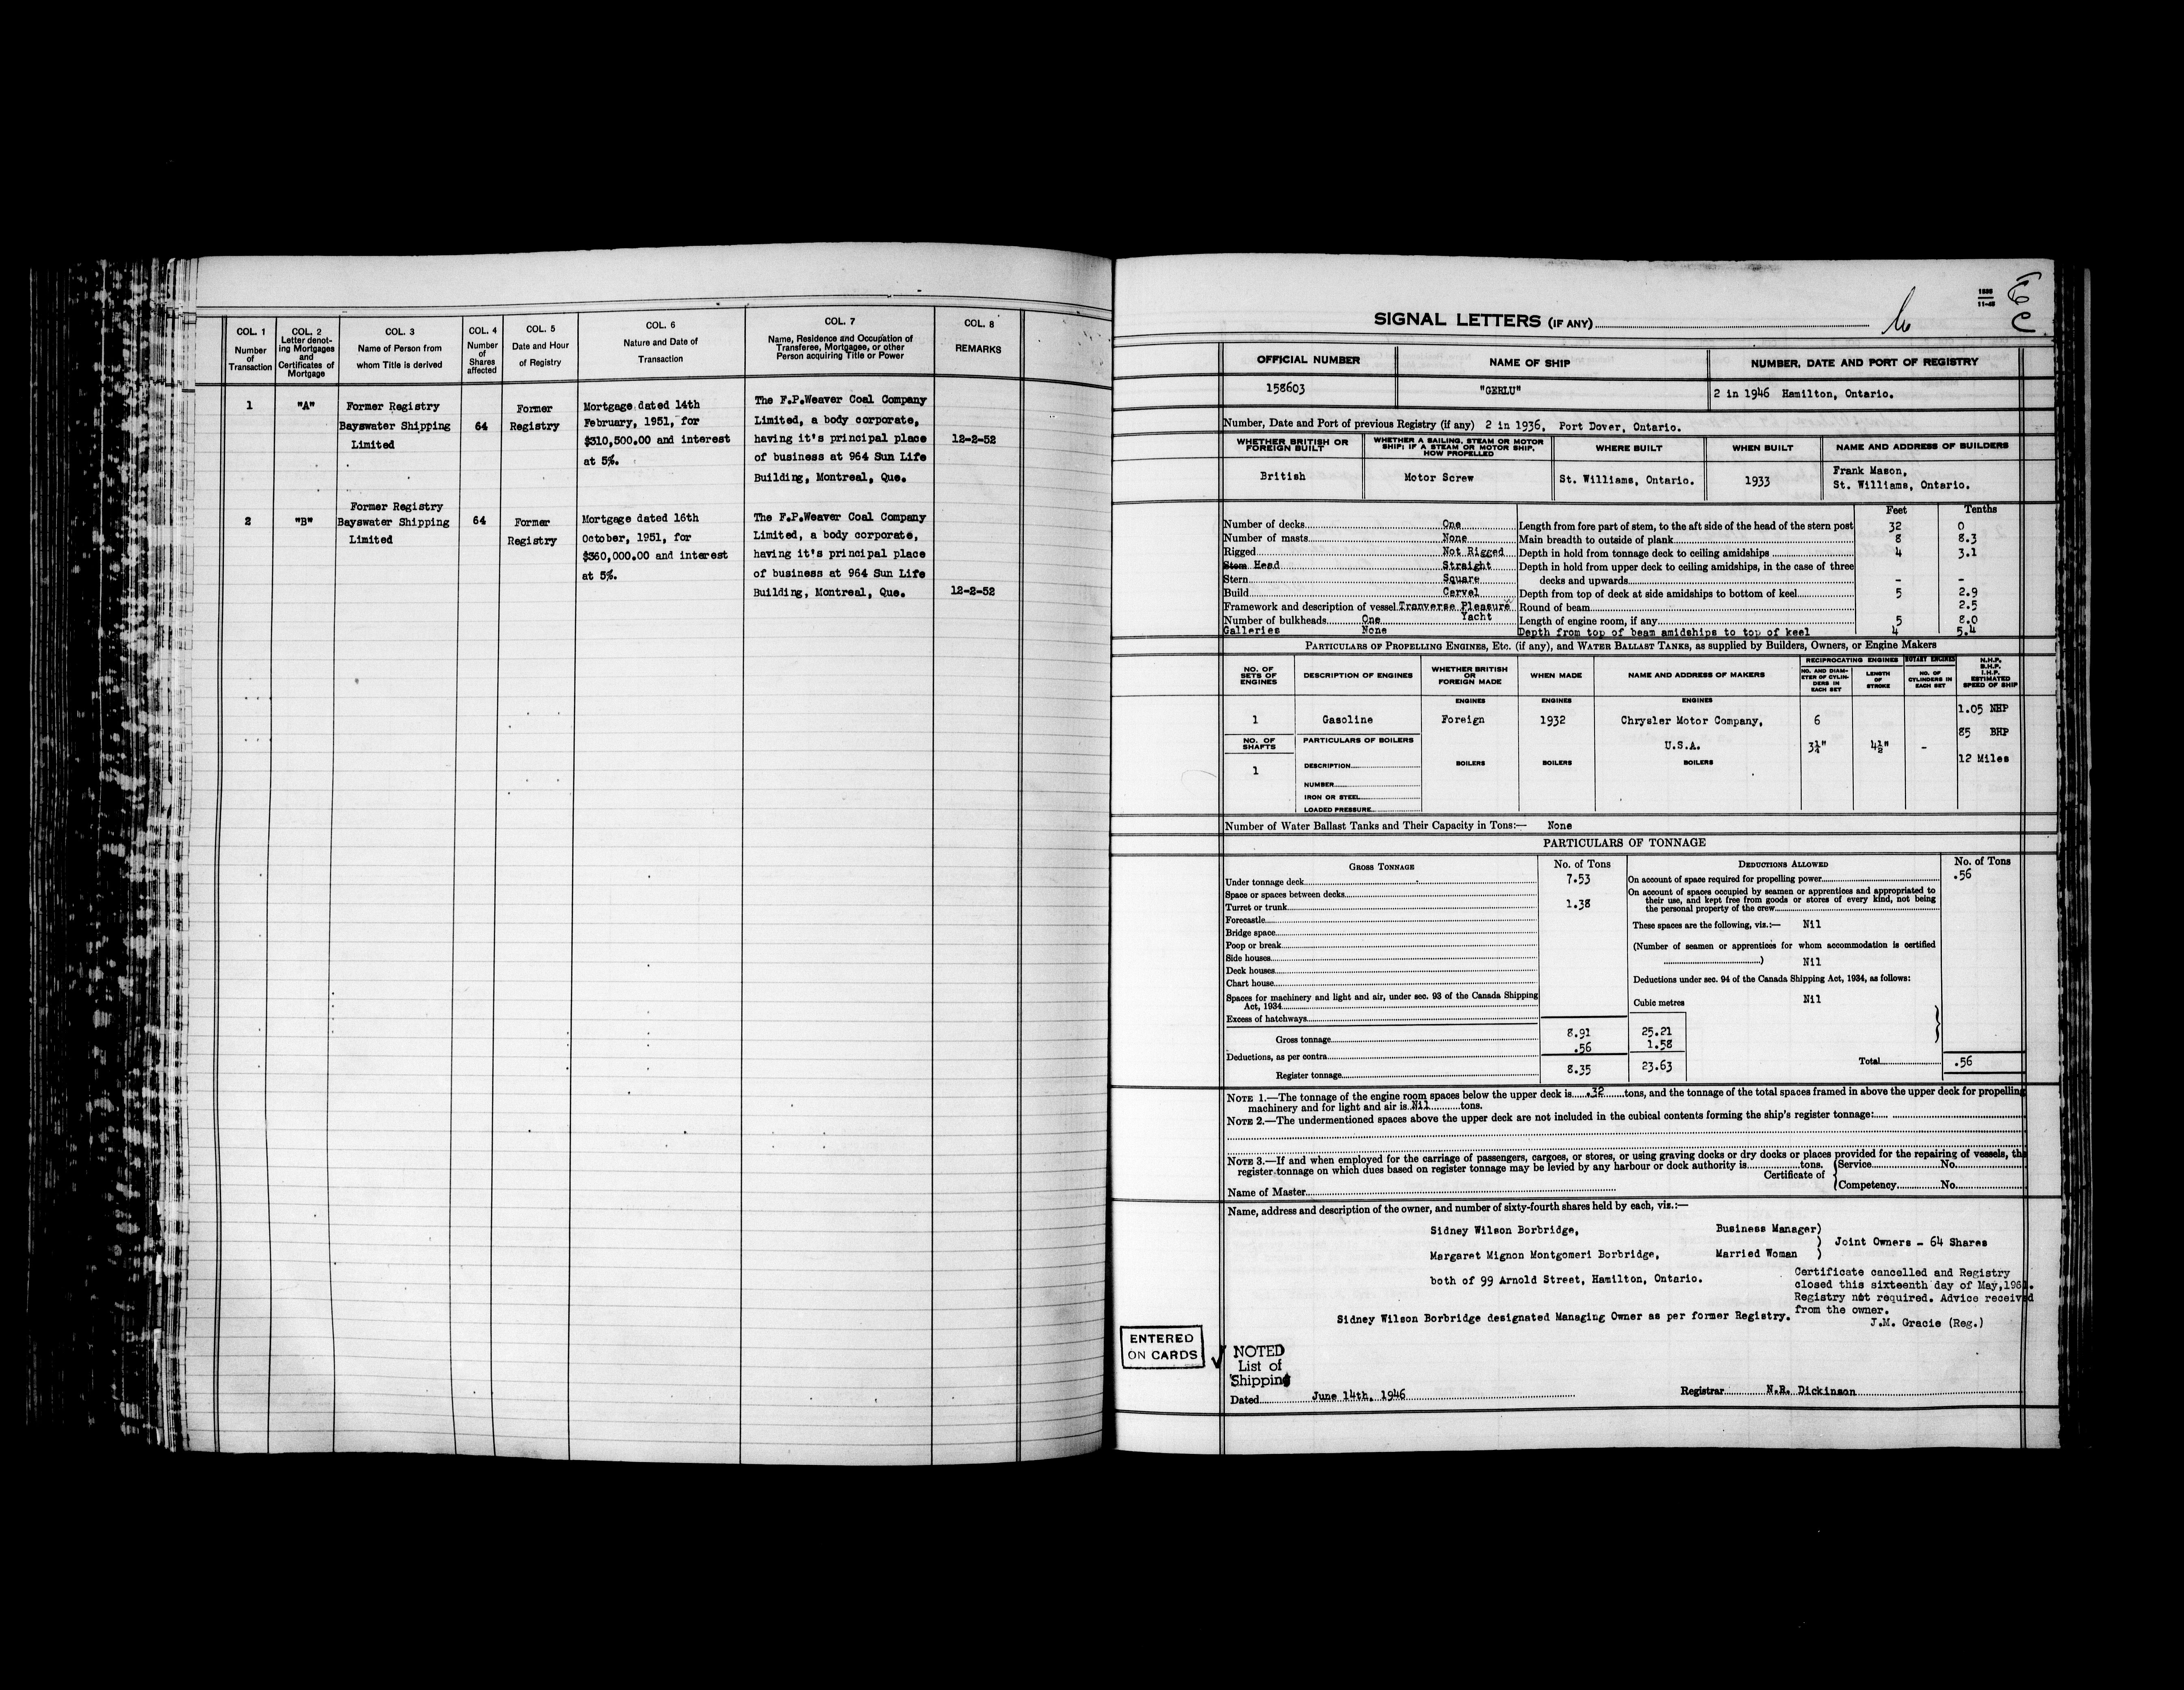 COL. 1
Number
of
Transaction
COL. 2
Letter denot-
ing Mortgages
and
Certificates of
Mortgage
COL. 3
Name of Person from
whom Title is derived
COL. 4
Number
of
Shares
affected
COL. 5
Date and Hour
of Registry
COL. 6
Nature and Date of
Transaction
COL. 7
Name, Residence and Occupation of
Transferee, Mortgagee, or other
Person acquiring Title or Power
COL. 8
REMARKS
1
"A"
Former Registry
Bayswater Shipping
Limited
64
Former
Registry
Mortgage dated 14th
February, 1951, for
$310,500.00 and interest
at 5%.
The F.P.Weaver Coal Company
Limited, a body corporate,
having it's principal place
of business at 964 Sun Life
Building, Montreal, Que.
12-2-52
2
"B"
Former Registry
Bayswater Shipping
Limited
64
Former
Registry
Mortgage dated 16th
October, 1951, for
$360,000.00 and interest
at 5%.
The F.P.Weaver Coal Company
Limited, a body corporate,
having it's principal place
of business at 964 Sun Life
Building, Montreal, Que.
12-2-52
SIGNAL LETTERS (IF ANY)
OFFICIAL NUMBER
NAME OF SHIP
NUMBER, DATE AND PORT OF REGISTRY
158603
"GERLU"
2 in 1946 Hamilton, Ontario.
Number, Date and Port of previous Registry (if any) 2 in 1936, Port Dover, Ontario.
WHETHER BRITISH OR
FOREIGN BUILT
WHETHER A SAILING, STEAM OR MOTOR
SHIP; IF A STEAM OR MOTOR SHIP,
HOW PROPELLED
WHERE BUILT
WHEN BUILT
NAME AND ADDRESS OF BUILDERS
British
Motor Screw
St. Williams, Ontario.
1933
Frank Mason,
St. Williams, Ontario.
Feet Tenths
Number of decks One
Length from fore part of stem, to the aft side of the head of the stern post 32 0
Number of masts None
Main breadth to outside of plank 8 8.3
Rigged Not Rigged
Depth in hold from tonnage deck to ceiling amidships 4 3.1
Stem Head Straight
Depth in hold from upper deck to ceiling amidships, in the case of three
Stern Square
decks and upwards - -
Build Carvel
Depth from top of deck at side amidships to bottom of keel 5 2.9
Framework and description of vessel Tranverse Pleasure
Yacht
Round of beam 2.5
Number of bulkheads One
Length of engine room, if any 5 8.0
Galleries None
Depth from top of beam amidships to top of keel 4 5.4
PARTICULARS OF PROPELLING ENGINES, ETC. (if any), and WATER BALLAST TANKS, as supplied by Builders, Owners, or Engine Makers
NO. OF
SETS OF
ENGINES
DESCRIPTION OF ENGINES
WHETHER BRITISH
OR
FOREIGN MADE
WHEN MADE
NAME AND ADDRESS OF MAKERS
RECIPROCATING ENGINES
NO. AND DIAM-
ETER OF CYLIN-
DERS IN
EACH SET
LENGTH
OF
STROKE
ROTARY ENGINES
NO. OF
CYLINDERS IN
EACH SET
N.H.P.
B.H.P.
I.H.P.
ESTIMATED
SPEED OF SHIP
ENGINES
ENGINES
ENGINES
1
Gasoline
Foreign
1932
Chrysler Motor Company,
U.S.A.
6
3¼"
4½"
-
1.05 NHP
85 BHP
12 Miles
NO. OF
SHAFTS
1
PARTICULARS OF BOILERS
DESCRIPTION
NUMBER
IRON OR STEEL
LOADED PRESSURE
BOILERS
BOILERS
BOILERS
Number of Water Ballast Tanks and Their Capacity in Tons:— None
PARTICULARS OF TONNAGE
GROSS TONNAGE
No. of Tons
Under tonnage deck 7.53
Space or spaces between decks
Turret or trunk 1.38
Forecastle
Bridge space
Poop or break
Side houses
Deck houses
Chart house
Spaces for machinery and light and air, under sec. 93 of the Canada Shipping
Act, 1934
Excess of hatchways
Gross tonnage 8.91 25.21
Deductions, as per contra .56 1.58
Register tonnage 8.35 23.63
DEDUCTIONS ALLOWED
No. of Tons
On account of space required for propelling power .56
On account of spaces occupied by seamen or apprentices and appropriated to
their use, and kept free from goods or stores of every kind, not being
the personal property of the crew
These spaces are the following, viz.:— Nil
(Number of seamen or apprentices for whom accommodation is certified
) Nil
Deductions under sec. 94 of the Canada Shipping Act, 1934, as follows:
Cubic metres Nil
Total .56
NOTE 1.—The tonnage of the engine room spaces below the upper deck is .32 tons, and the tonnage of the total spaces framed in above the upper deck for propelling
machinery and for light and air is Nil tons.
NOTE 2.—The undermentioned spaces above the upper deck are not included in the cubical contents forming the ship's register tonnage:
NOTE 3.—If and when employed for the carriage of passengers, cargoes, or stores, or using graving docks or dry docks or places provided for the repairing of vessels, the
register tonnage on which dues based on register tonnage may be levied by any harbour or dock authority is tons.
Certificate of
Service No.
Competency No.
Name of Master
Name, address and description of the owner, and number of sixty-fourth shares held by each, viz.:—
Sidney Wilson Borbridge, Business Manager)
) Joint Owners - 64 Shares
Margaret Mignon Montgomeri Borbridge, Married Woman )
both of 99 Arnold Street, Hamilton, Ontario.
Certificate cancelled and Registry
closed this sixteenth day of May,1961.
Registry not required. Advice received
from the owner.
J.M. Gracie (Reg.)
Sidney Wilson Borbridge designated Managing Owner as per former Registry.
ENTERED
ON CARDS
NOTED
List of
Shipping
Dated June 14th, 1946
Registrar N.R. Dickinson